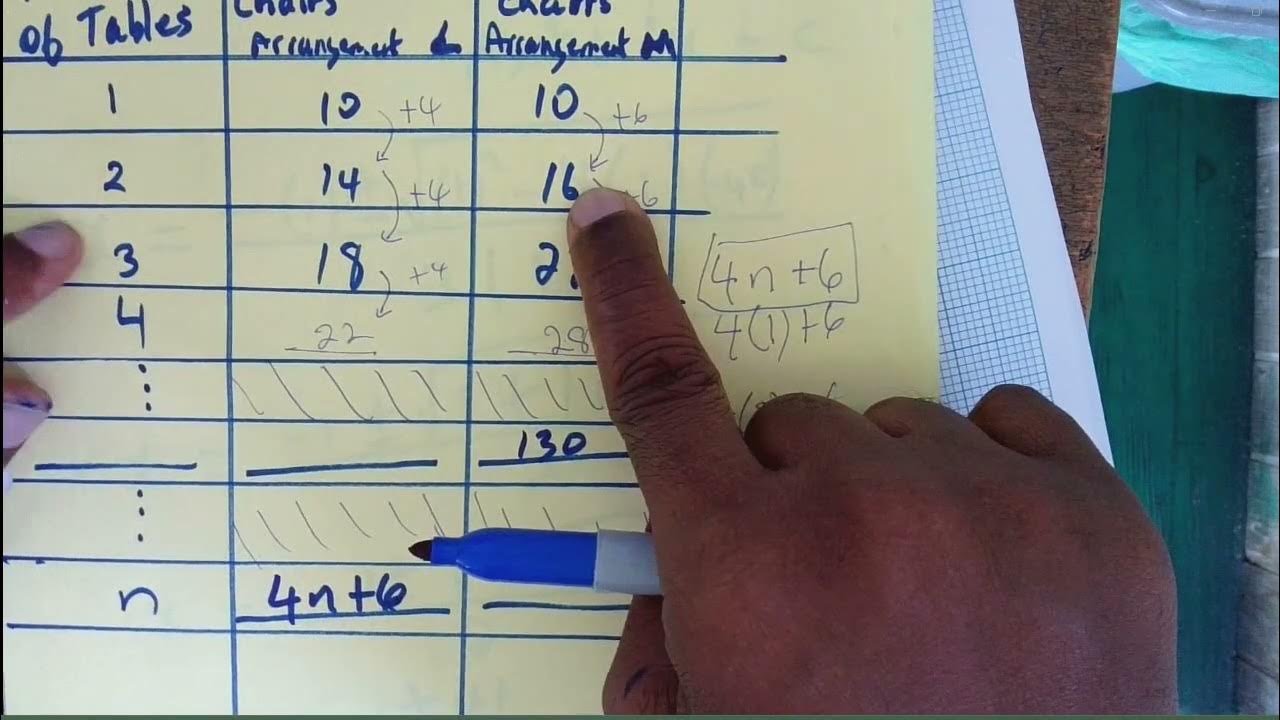 of Tables
Chairs
Arrangement L
Chairs
Arrangement M
1 10 +4 10 +6
2 14 +4 16 +6
3 18 +4 2
4 22 28
130
n 4n+6
4n+6
4(1)+6